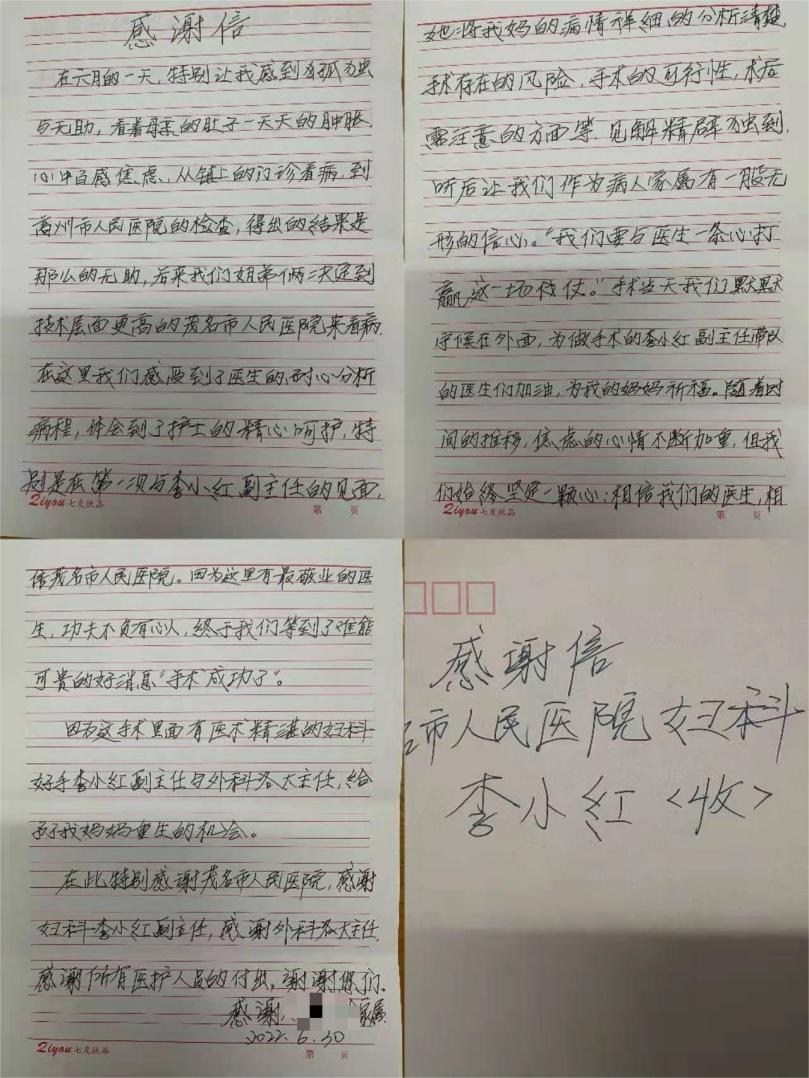 感谢信
在六月的一天，特别让我感到孤独
与无助，看着母亲的肚子一天天的肿胀，
心中百感焦虑，从镇上的门诊看病，到
高州市人民医院的检查，得出的结果是
那么的无助，后来我们姐弟俩决定到
技术层面更高的茂名市人民医院来看病，
在这里我们感受到了医生的耐心分析
病程，体会到了护士的精心呵护，特
别是在第一次与李小红副主任的见面，
Qiyou 七友纸品
第 页
她将我妈的病情详细的分析清楚，
手术存在的风险，手术的可行性，术后
需注意的方面等，见解精辟独到，
听后让我们作为病人家属有一股无
形的信心。“我们要与医生一条心打
赢这一场硬仗。”手术当天我们默默
守候在外面，为做手术的李小红副主任带队
的医生们加油，为我的妈妈祈福。随着时
间的推移，焦虑的心情不断加重，但我
们始终坚定一颗心：相信我们的医生，相
Qiyou 七友纸品
第 页
信茂名市人民医院。因为这里有最敬业的医
生，功夫不负有心人，终于我们等到了难能
可贵的好消息“手术成功了”。
因为这手术里面有医术精湛的妇科
好手李小红副主任与外科各大主任，给
予了我妈妈重生的机会。
在此特别感谢茂名市人民医院，感谢
妇科李小红副主任，感谢外科各大主任，
感谢所有医护人员的付出，谢谢您们。
感谢人 家属
2022.6.30
Qiyou 七友纸品
第 页
感谢信
市人民医院 妇科
李小红〈收〉